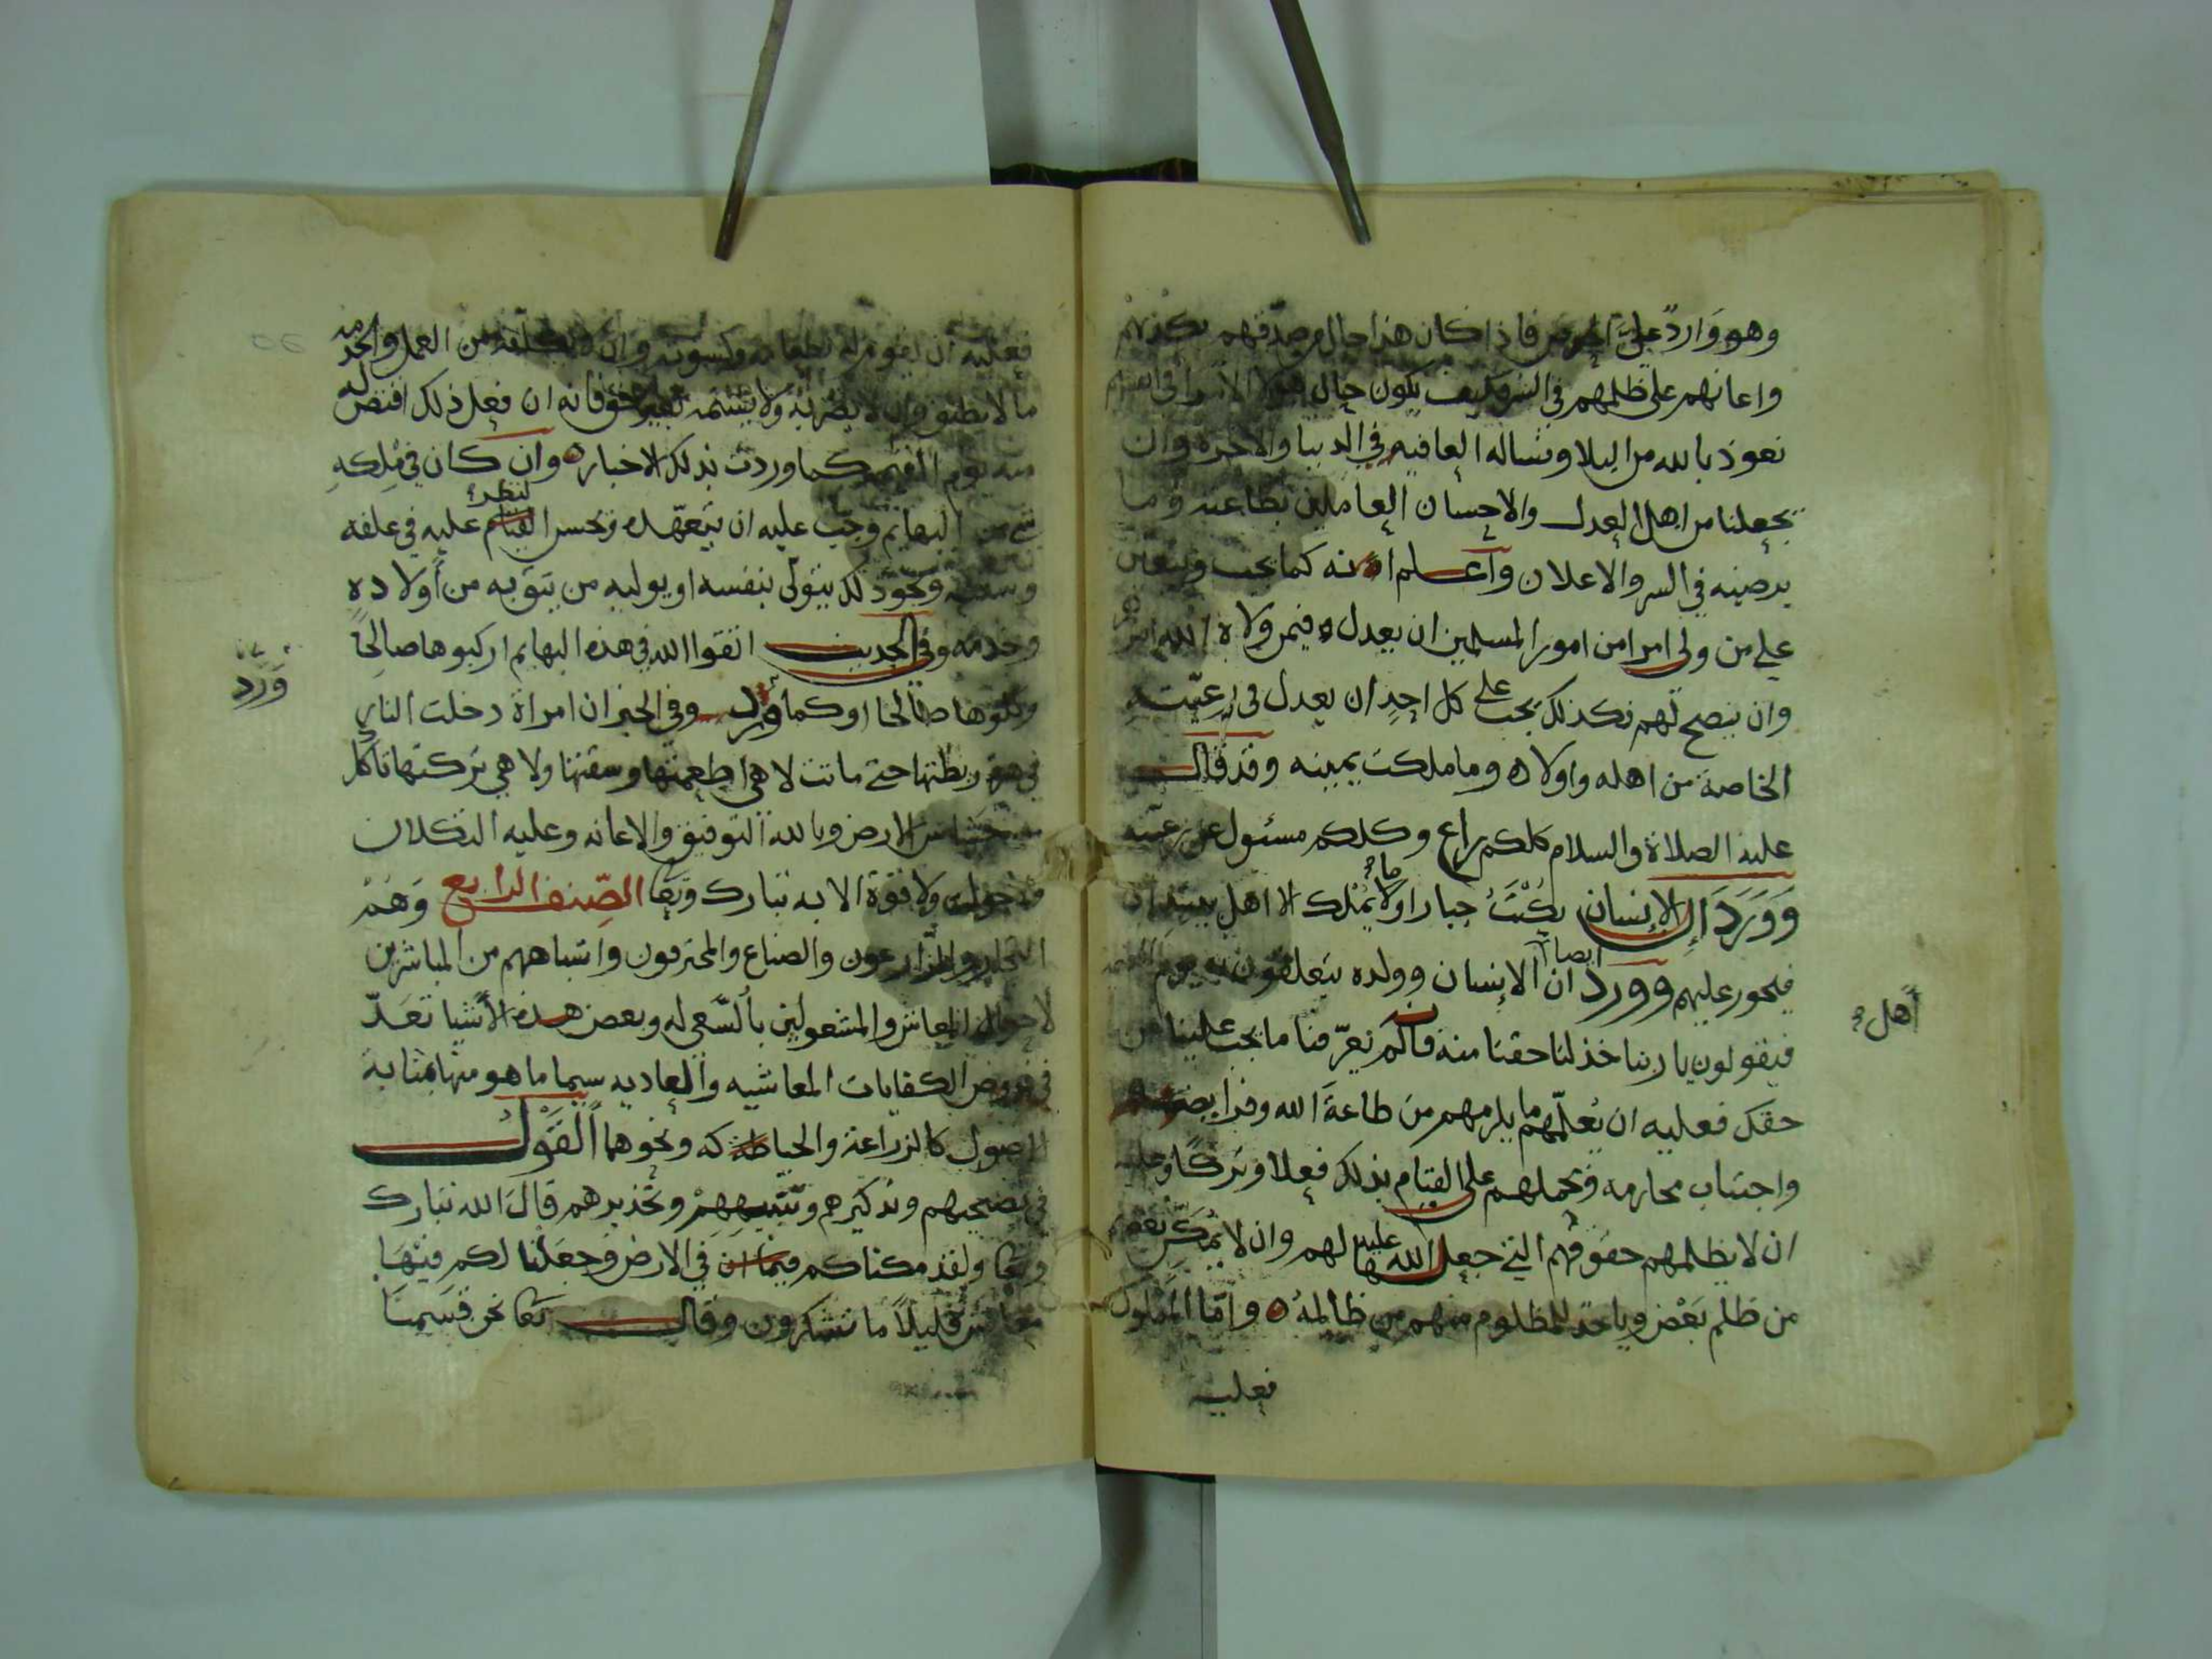 وهو وارد علي الحوض فاذا كان هذا حال من صدقهم بكذبهم
واعانهم على ظلمهم في الشر فكيف يكون حال هولا الامرا في
نعوذ بالله من البلا ونساله العافيه في الدنيا والاخره وان
يجعلنا من اهل العدل والاحسان العاملين بطاعته وما
يرضيه في السر والاعلان واعلم انه كما يجب ويتعين
علي من ولى امرا من امور المسلمين ان يعدل فيمن ولاه الله امر
وان ينصح لهم فكذلك يجب على كل احد ان يعدل في رعيته
الخاصة من اهله واولاده وما ملكت يمينه وقد قال
عليه الصلاة والسلام كلكم راع وكلكم مسئول عن رعيته
وورد ان الانسان يكتب جبارا وما يملك الا اهل بيته اي
فيجور عليهم وورد ايضا ان الانسان وولده يتعلقون به يوم القيمه
اهل
فيقولون يا ربنا خذ لنا حقنا منه فانه لم يعرفنا ما يجب علينا من
حقك فعليه ان يعلمهم ما يلزمهم من طاعة الله وفرايضه
واجتناب محارمه ويحملهم على القيام بذلك فعلا وتركا وعليه
ان لا يظلمهم حقوقهم التي جعل الله عليه لهم وان لا يمكن بعضهم
من ظلم بعض وياخذ للمظلوم منهم من ظالمه واما المملوك
فعليه
فعليه ان يقوم له بطعامه وكسوته وان لا يكلفه من العمل والخدمه
ما لا يطيق وان لا يضربه ولا يشتمه بغير حق فانه ان فعل ذلك اقتص له
منه يوم القيمه كما وردت بذلك الاخبار وان كان في ملكه
شي من البهايم وجب عليه ان يتعهده ويحسن النظر عليه في علفه
وسقيه ونحو ذلك يتولى بنفسه او يوليه من يثق به من اولاده
وخدمه وفي الحديث اتقوا الله في هذه البهايم اركبوها صالحا
وكلوها صالحا او كما ورد وفي الخبر ان امراة دخلت النار
ورد
في هرة ربطتها حتى ماتت لا هي اطعمتها وسقتها ولا هي تركتها تاكل
من خشاش الارض وبالله التوفيق والاعانه وعليه التكلان
ولا حول ولا قوة الا به تبارك وتعا الصنف الرابع وهم
التجار والزارعون والصناع والمحترفون واشباههم من المباشرين
لاحوال المعاش والمشغولين بالسعي له وبعض هذه الاشيا تعد
في فروض الكفايات المعاشيه والعاديه سيما ما هو منها بمثابة
الاصول كالزراعة والحياكه ونحوهما القول
في نصيحتهم وتذكيرهم وتنبيههم وتحذيرهم قال الله تبارك
وتعا ولقد مكناكم في الارض وجعلنا لكم فيها
معايش قليلا ما تشكرون وقال تعا نحن قسمنا